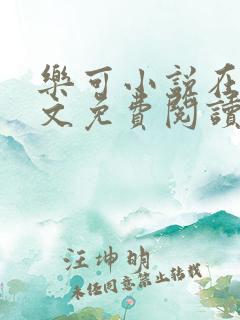 樂可小說在
文免費閱讀
汪坤明
未经同意禁止转载